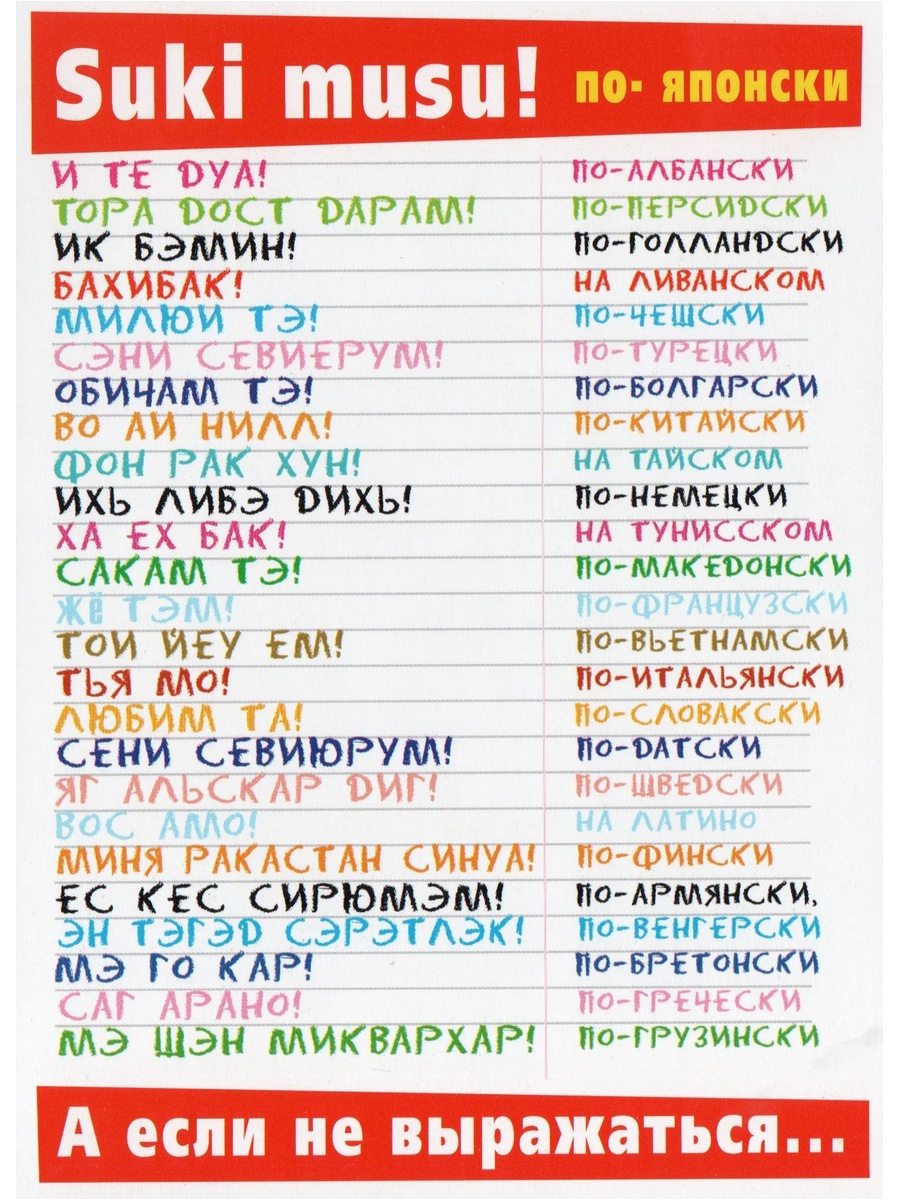 Suki musu! по- японски
И ТЕ ДУА! ПО-АЛБАНСКИ
ТОРА ДОСТ ДАРАМ! ПО-ПЕРСИДСКИ
ИК БЭМИН! ПО-ГОЛЛАНДСКИ
БАХИБАК! НА ЛИВАНСКОМ
МИЛЮИ ТЭ! ПО-ЧЕШСКИ
СЭНИ СЕВИЕРУМ! ПО-ТУРЕЦКИ
ОБИЧАМ ТЭ! ПО-БОЛГАРСКИ
ВО АИ НИЛЛ! ПО-КИТАЙСКИ
ФОН РАК ХУН! НА ТАЙСКОМ
ИХЬ ЛИБЭ ДИХЬ! ПО-НЕМЕЦКИ
ХА ЕХ БАК! НА ТУНИССКОМ
САКАМ ТЭ! ПО-МАКЕДОНСКИ
ЖЁ ТЭМ! ПО-ФРАНЦУЗСКИ
ТОИ ЙЕУ ЕМ! ПО-ВЬЕТНАМСКИ
ТЬЯ МО! ПО-ИТАЛЬЯНСКИ
ЛЮБИМ ТА! ПО-СЛОВАКСКИ
СЕНИ СЕВИЮРУМ! ПО-ДАТСКИ
ЯГ АЛЬСКАР ДИГ! ПО-ШВЕДСКИ
ВОС АМО! НА ЛАТИНО
МИНЯ РАКАСТАН СИНУА! ПО-ФИНСКИ
ЕС КЕС СИРЮМЭМ! ПО-АРМЯНСКИ,
ЭН ТЭГЭД СЭРЭТЛЭК! ПО-ВЕНГЕРСКИ
МЭ ГО КАР! ПО-БРЕТОНСКИ
САГ АРАНО! ПО-ГРЕЧЕСКИ
МЭ ШЭН МИКВАРХАР! ПО-ГРУЗИНСКИ
А если не выражаться...